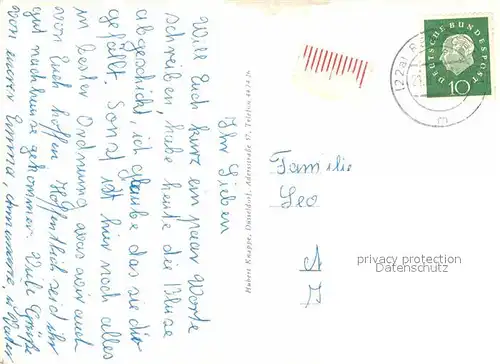 Ihr Lieben
Will Euch kurz ein paar Worte
schreiben, habe heute die Bluse
abgeschickt, ich glaube das sie dir
gefällt. Sonst ist hier noch alles
in bester Ordnung was wir auch
von Euch hoffen. Hoffentlich seid ihr
gut nach hause gekommen. Viele Grüße
von eurer Emma,
Hubert Knappe, Düsseldorf, Adersstraße 17, Telefon
Familie
Leo
DEUTSCHE BUNDESPOST
10
(22a)
m
privacy protection
Datenschutz